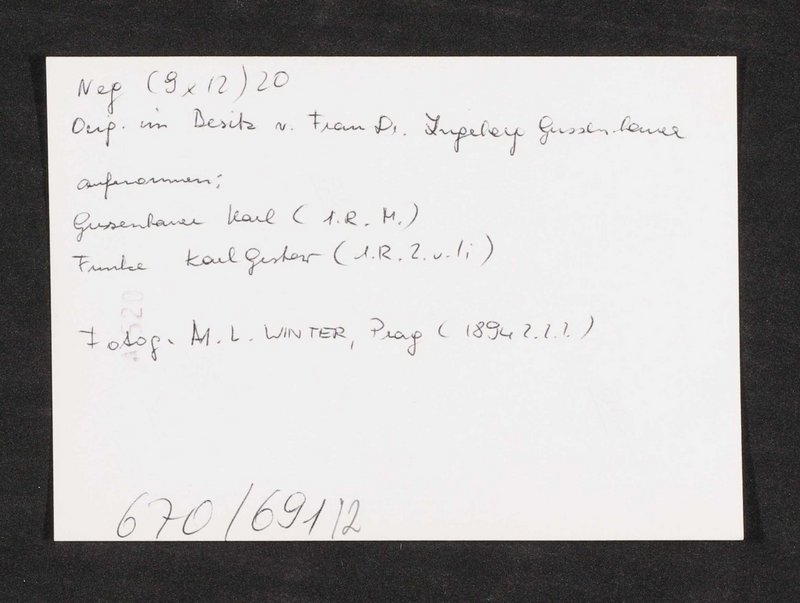 Neg (9x12) 20
Orig. im Besitz v. Frau Dr. Ingeborg Gussenbauer
aufnommen:
Gussenbauer Karl (1.R. M.)
Funke Karl Gustav (1.R. 2. v. li)
Fotog. M. L. WINTER, Prag (1894 ? ? ?)
670/691/2